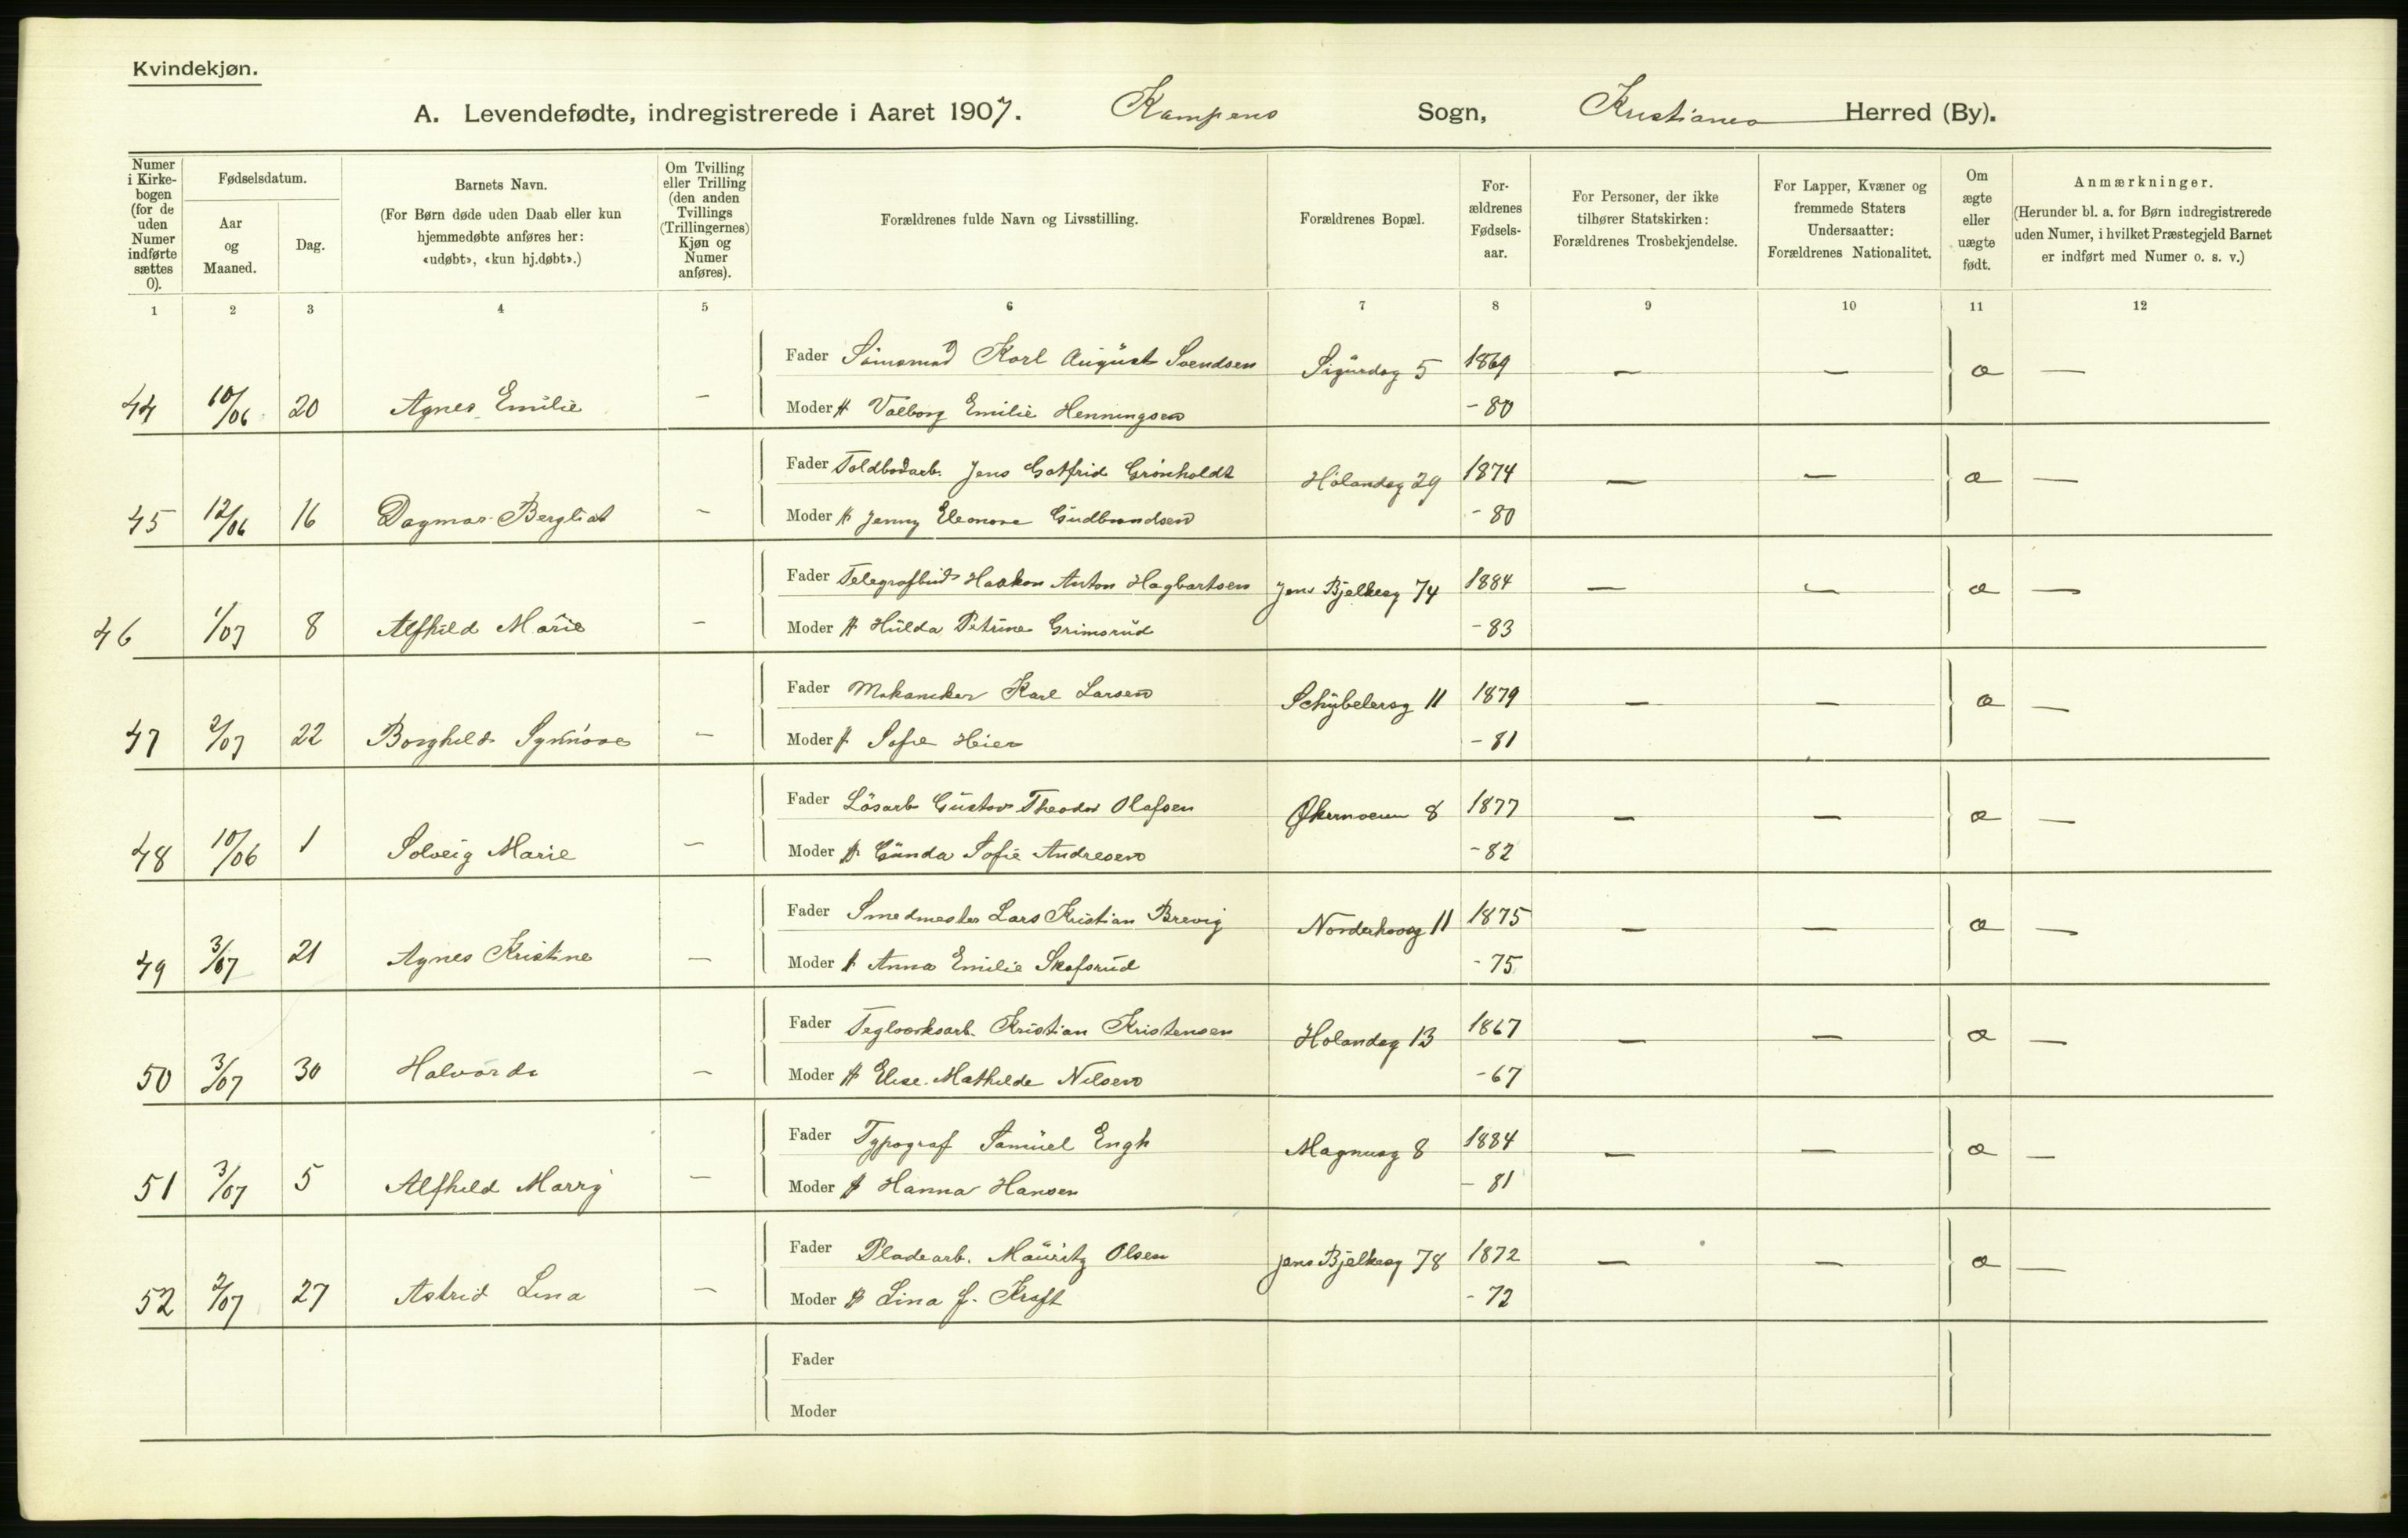 Kvindekjøn.
A. Levendefødte, indregistrerede i Aaret 1907. Kampens Sogn, Kristiania Herred (By).
Numer i Kirkebogen (for de uden Numer indførte sættes 0).
Fødselsdatum.
Aar og Maaned.
Dag.
Barnets Navn.
(For Børn døde uden Daab eller kun hjemmedøbte anføres her: «udøbt», «kun hj.døbt».)
Om Tvilling eller Trilling (den anden Tvillings (Trillingernes) Kjøn og Numer anføres).
Forældrenes fulde Navn og Livsstilling.
Forældrenes Bopæl.
Forældrenes Fødselsaar.
For Personer, der ikke tilhører Statskirken: Forældrenes Trosbekjendelse.
For Lapper, Kvæner og fremmede Staters Undersaatter: Forældrenes Nationalitet.
Om ægte eller uægte født.
Anmærkninger.
(Herunder bl. a. for Børn indregistrerede uden Numer, i hvilket Præstegjeld Barnet er indført med Numer o. s. v.)
1 2 3 4 5 6 7 8 9 10 11 12
Fader Sömand Karl August Svendsen Sigurdsg 5 1869 — — æ —
44 10/06 20 Agnes Emilie — Moder H Valborg Emilie Henningsen - 80
Fader Toldbodarb. Jens Gotfrid Grönholdt Hölandsg 29 1874 — — æ —
45 12/06 16 Dagmar Bergliot — Moder H Jenny Eleonore Gudbrandsen - 80
Fader Telegrafbud Haakon Anton Hagbartsen Jens Bjelkesg 74 1884 — — æ —
46 1/07 8 Alfhild Marie — Moder H Hulda Petrine Grimsrud - 83
Fader Mekaniker Karl Larsen Schübelersg 11 1879 — — æ —
47 2/07 22 Borghild Synnöve — Moder H Sofie Heier - 81
Fader Lösarb Gustav Theodor Olafsen Økernveien 8 1877 — — æ —
48 10/06 1 Solveig Marie — Moder H Gunda Sofie Andresen - 82
Fader Smedmester Lars Kristian Brevig Norderhovsg 11 1875 — — æ —
49 3/07 21 Agnes Kristine — Moder H Anna Emilie Skofsrud - 75
Fader Teglverksarb. Kristian Kristensen Hölandsg 13 1867 — — æ —
50 3/07 30 Halvorda — Moder H Elise Mathilde Nilsen - 67
Fader Typograf Samuel Engh Magnusg 8 1884 — — æ —
51 3/07 5 Alfhild Marry — Moder H Hanna Hansen - 81
Fader Pladearb. Mauritz Olsen Jens Bjelkesg 78 1872 — — æ —
52 2/07 27 Astrid Lina — Moder H Lina f. Kraft - 72
Fader
Moder